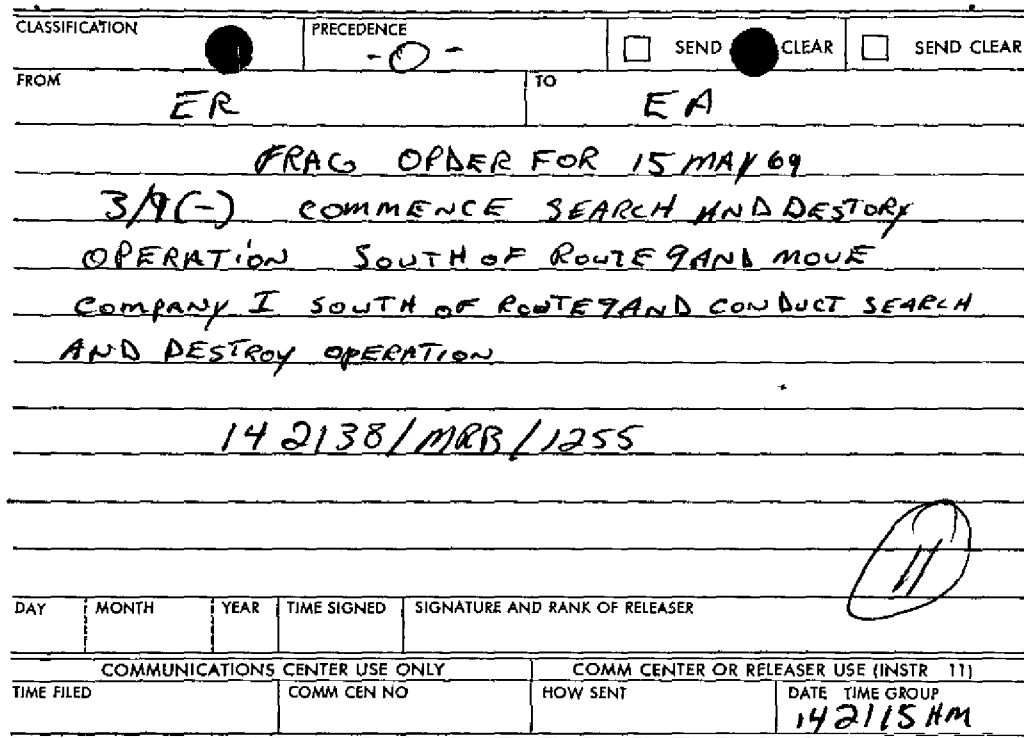 CLASSIFICATION PRECEDENCE -O- SEND CLEAR SEND CLEAR
FROM ER TO EA
FRAG OPDER FOR 15 MAY 69
3/9(-) COMMENCE SEARCH AND DESTORY
OPERATION SOUTH OF ROUTE 9 AND MOVE
COMPANY I SOUTH OF ROUTE 9 AND CONDUCT SEARCH
AND DESTROY OPERATION
142138/MRB/1255
11
DAY MONTH YEAR TIME SIGNED SIGNATURE AND RANK OF RELEASER
COMMUNICATIONS CENTER USE ONLY COMM CENTER OR RELEASER USE (INSTR 11)
TIME FILED COMM CEN NO HOW SENT DATE TIME GROUP
142115 HM